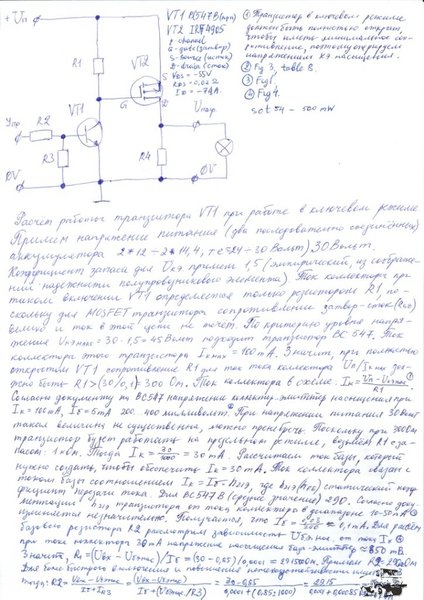 +Uп
VT1 BC547B (npn)
VT2 IRF4905
p-channel
G-gate (затвор)
S-source (исток)
D-drain (сток)
VDSS = -55V
RDS = 0,02 Ω
ID = -74A
① Транзистор в ключевом режиме
должен быть полностью открыт,
чтобы иметь минимальное соп-
ротивление, поэтому оперируем
напряжением кэ насыщения.
② Fig 3, table 8.
③ Fig 1,
④ Fig 4.
sot54 - 500 mW
R1
VT2
S
G
D
VT1
Uупр
R2
R3
R4
0V
0V
Расчет работы транзистора VT1 при работе в ключевом режиме
Примем напряжение питания (два последовательно соединённых
аккумулятора 2*12 ÷ 2*14,4, т.е 24÷30 Вольт) 30 Вольт.
Коэффициент запаса для Uкэ примем 1,5 (эмпирический, из сообра-
жений надежности полупроводникового элемента). Ток коллектора при
таком включении VT1 определяется только резистором R1 по-
скольку для MOSFET транзистора сопротивление затвор-сток
велико и ток в этой цепи не течет. По критерию уровня напря-
жения 30·1,5=45 Вольт подходит транзистор BC 547. Ток
коллектора этого транзистора Iк max = 100 mA. Значит, при полностью
открытом VT1 сопротивление R1 для тока коллектора дол-
жно быть R1 > (30/0,1) 300 Ом. Ток коллектора в схеме: Iк=
Согласно документу на BC547 напряжение коллектор-эмиттер насыщения при
Iк=100mA, Iб=5mA 200..400 милливольт. При напряжении питания 30 вольт
такая величина не существенна, можно пренебречь. Поскольку при 300 Ом
транзистор будет работать на предельном режиме, возьмем R1 с за-
пасом: 1 кОм. Тогда Iк = 30/1000 = 30 mA. Рассчитаем ток базы, который
нужно создать, чтобы обеспечить Iк = 30 mA. Ток коллектора связан с
током базы соотношением Iк = Iб · h21э, где h21э статический коэф-
фициент передачи тока. Для BC547B (среднее значение) 290. Согласно доку-
ментации h21э транзистора от тока коллектора в диапазоне 10-50 mA ③
изменяется незначительно. Получается, что Iб = 0,03/290 = 0,1 mA. Для расчёта
базового резистора R2 рассмотрим зависимость Uбэ нас. от тока Iк ④
при токе коллектора 30 mA напряжение насыщения баз-эмиттер ≈ 850 mB.
Значит, = (30-0,85)/0,0001 = 291500 Ом.
Для более быстрого выключения и повышения
тогда: R2=